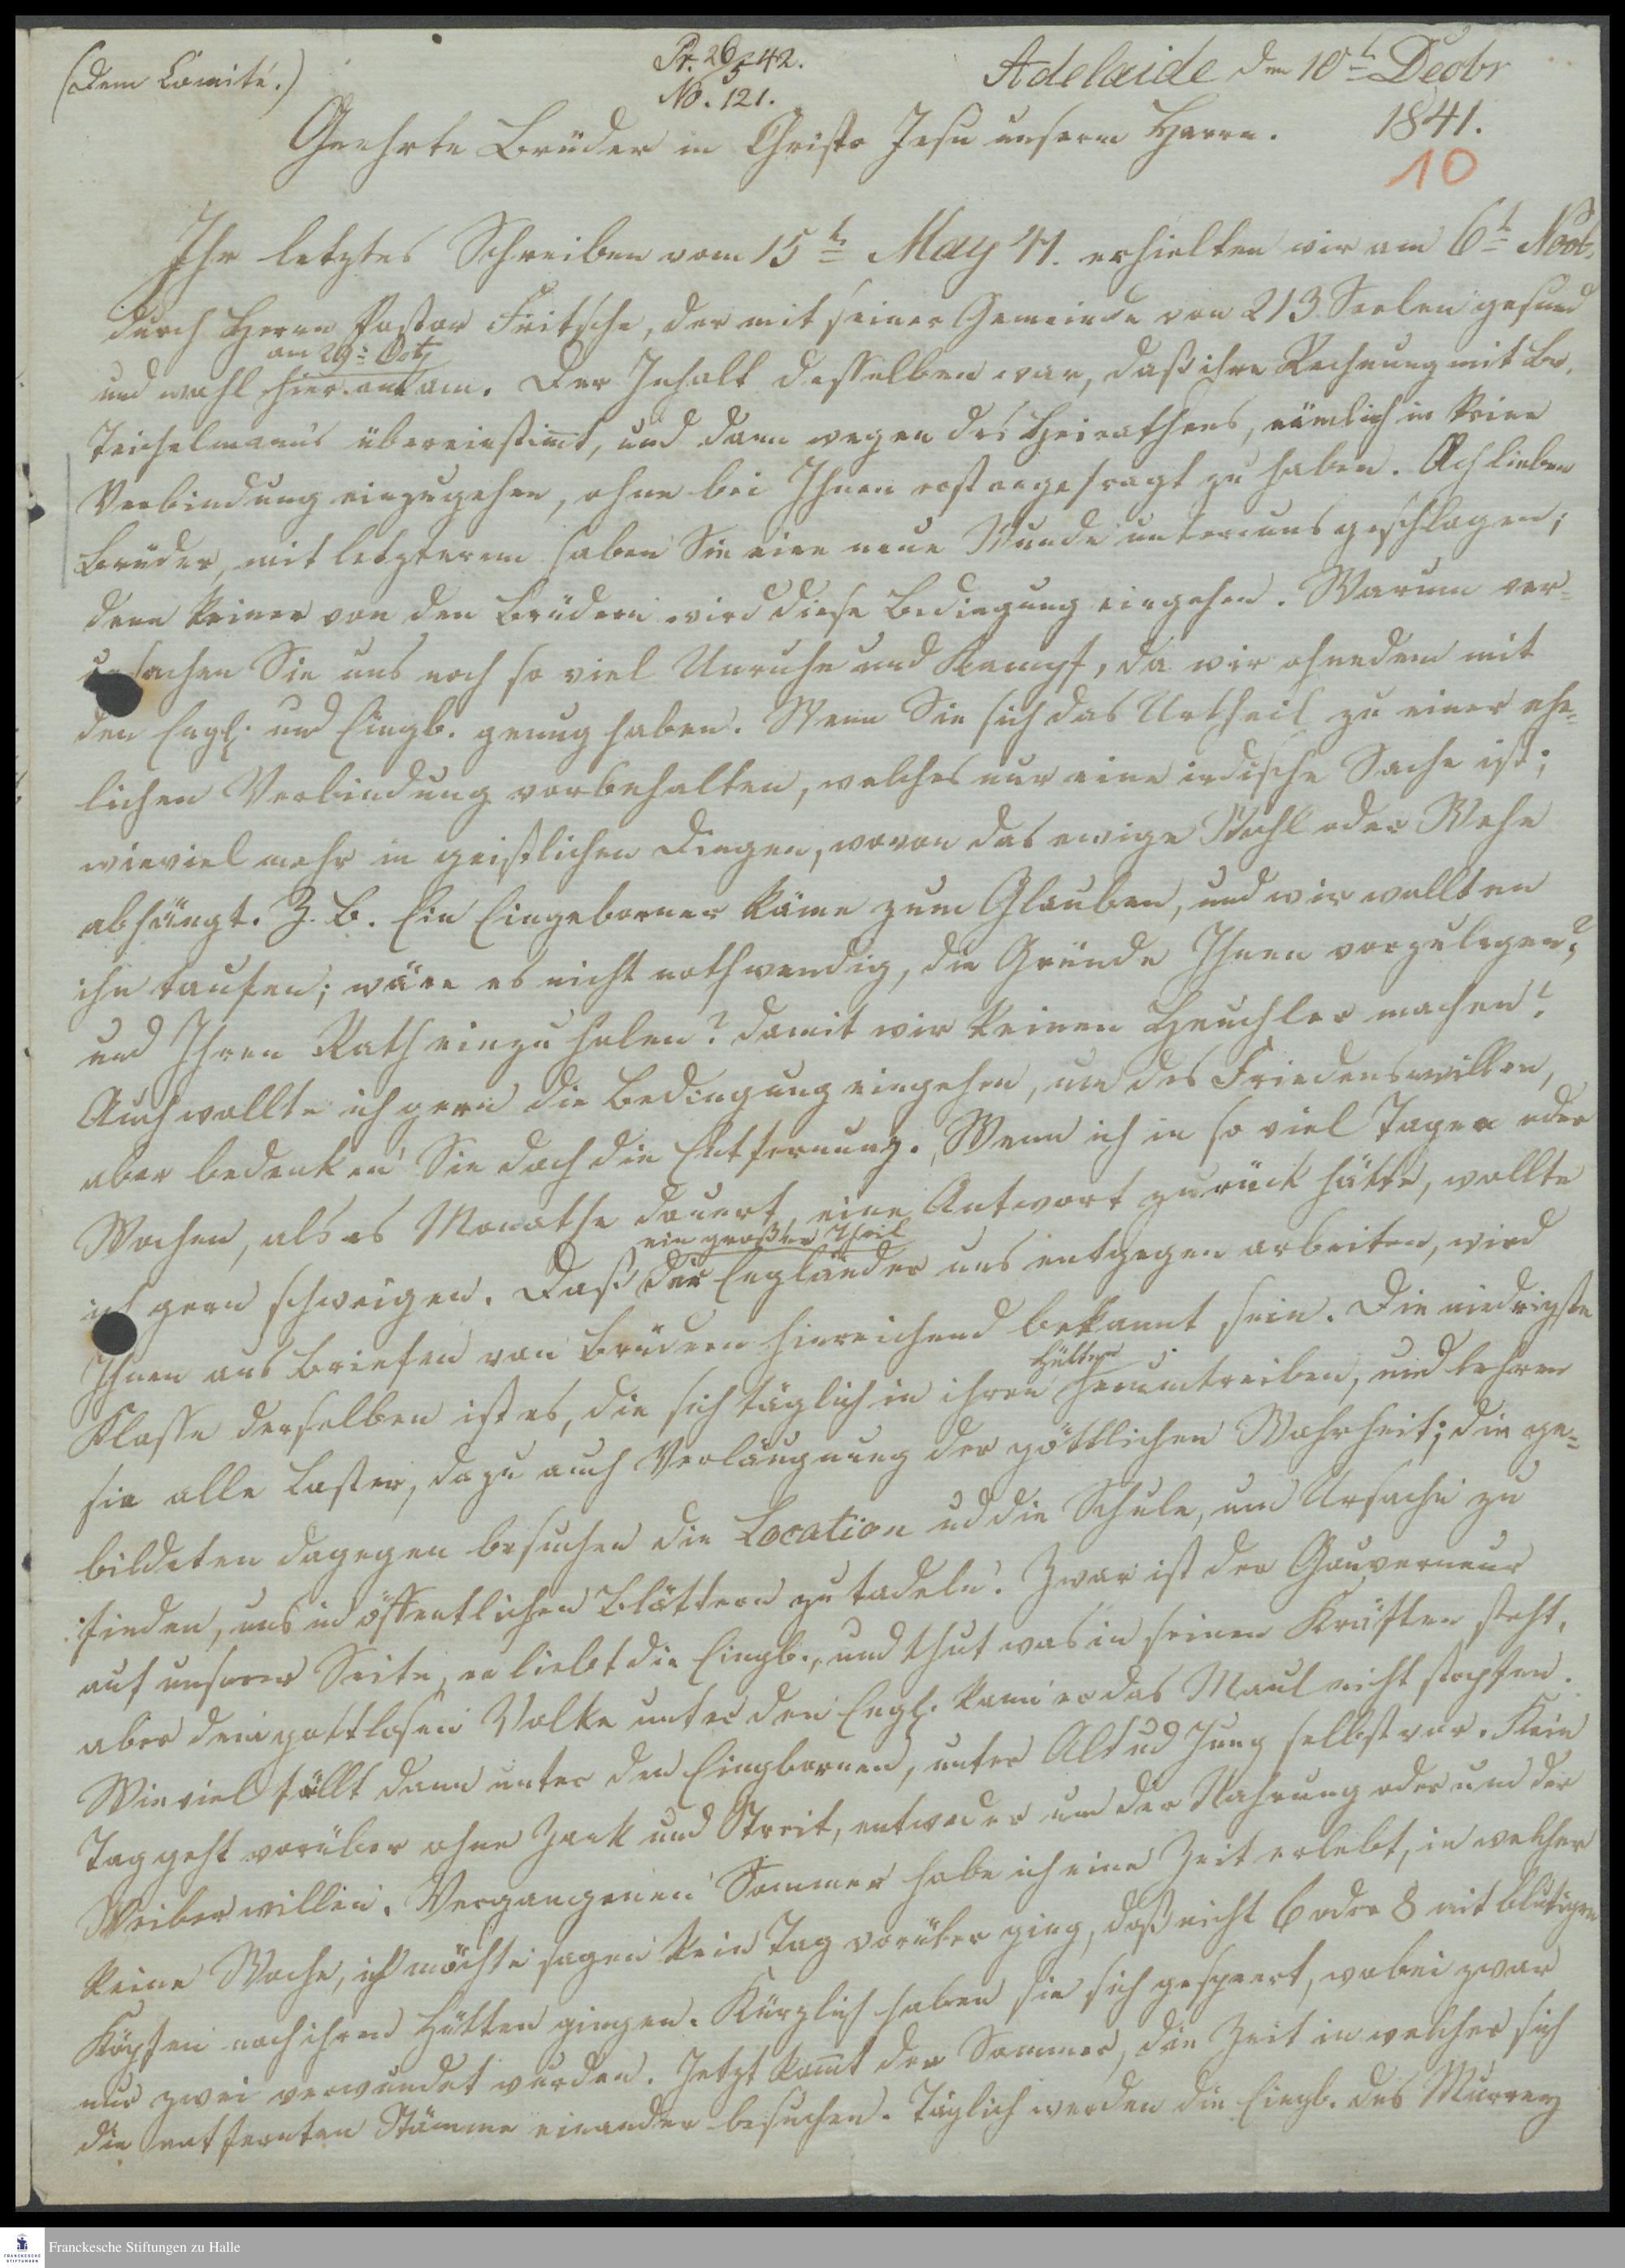 (Dem Comité.)
Pr. 26/5 42.
No. 121.
Adelaide den 10t Decbr
1841.
10
Geehrte Brüder in Christo Jesu unserm Herrn.
Ihr letztes Schreiben vom 15t May 41. erhielten wir am 6t Novb.
durch Herrn Pastor Fritsche, der mit seiner Gemeinde von 213 Seelen gesund
am 29t Octb
und wohl hier ankam. Der Inhalt desselben war, daß ihre Rechnung mit Br.
Teichelmann's übereinstimt, und dann wegen des Heirathens, nämlich in keine
Verbindung einzugehen, ohne bei Ihnen erst angefragt zu haben. Ach lieben
Brüder, mit letzterem haben Sie eine neue Wunde unter uns geschlagen;
denn keiner von den Brüdern wird diese Bedingung eingehen. Warum ver-
ursachen Sie uns noch so viel Unruhe und Kampf, da wir ohnedem mit
den Engl. und Eingb. genug haben. Wenn Sie sich das Urtheil zu einer ehe-
lichen Verbindung vorbehalten, welches nur eine irdische Sache ist;
wieviel mehr in geistlichen Dingen, wovon das ewige Wohl oder Wehe
abhängt. Z. B. Ein Eingeborner käme zum Glauben, und wir wollten
ihn taufen; wäre es nicht nothwendig, die Gründe Ihnen vorzulegen?
und Ihren Rath einzuholen? damit wir keinen Heuchler machen?
Auch wollte ich gern die Bedingung eingehen, um des Friedenswillen,
aber bedenken Sie doch die Entfernung. Wenn ich in so viel Tagen oder
Wochen, als es Monathe dauert eine Antwort zurück hätte, wollte
ich gern schweigen. Daß ein großer Theil der Engländer uns entgegen arbeiten, wird
Ihnen aus Briefen von Brüdern hinreichend bekannt sein. Die niedrigste
Klasse derselben ist es, die sich täglich in ihren Hütten herumtreiben, und lehren
sie alle Laster, dazu auch Verläugnung der göttlichen Wahrheit; die ge-
bildeten dagegen besuchen die Location ud die Schule, um Ursache zu
finden, uns in öffentlichen Blättern zu tadeln. Zwar ist der Gouverneur
auf unserer Seite, er liebt die Eingb., und thut was in seinen Kräften steht,
aber dem gottlosen Volke unter den Engl. kann er das Maul nicht stopfen.
Wieviel fällt dann unter den Eingbornen, unter Alt ud Jung selbst vor. Kein
Tag geht vorüber ohne Zank und Streit, entweder um der Nahrung oder um der
Weiber willen. Vergangenen Sommer habe ich eine Zeit erlebt, in welcher
keine Woche, ich möchte sagen kein Tag vorüber ging, daß nicht 6 oder 8 mit blutigen
Köpfen nach ihren Hütten gingen. Kürzlich haben sie sich gespeert, wobei zwar
nur zwei verwundet wurden. Jetzt komt der Sommer, die Zeit in welcher sich
die entfernten Stämme einander besuchen. Täglich werden die Eingb. des Murray
Franckesche Stiftungen zu Halle